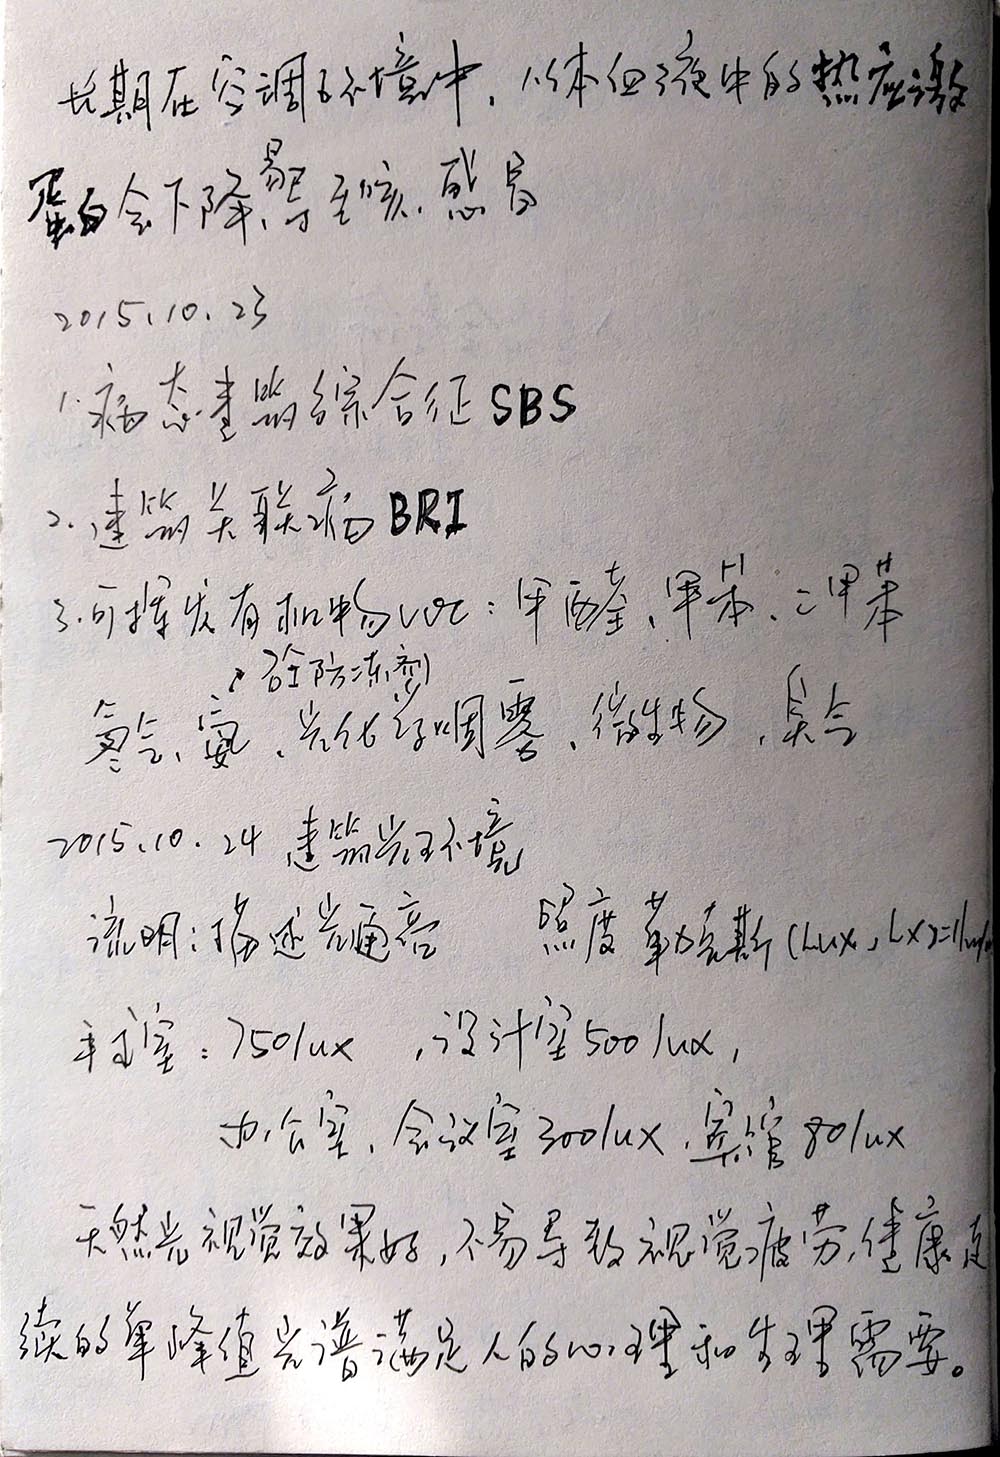 长期在空调环境中，人体血液中的热应激
蛋白会下降，易导至咳、感冒
2015.10.23
1.病态建筑综合征SBS
2.建筑关联病BRI
3.可挥发有机物VOC：甲醛、甲苯、二甲苯
砼防冻剂
氡气、氨、光化学烟雾、微生物、臭气
2015.10.24 建筑光环境
流明：描述光通量 照度 勒克斯(Lux，Lx)=1lm/
手术室：750lux ，设计室500lux，
办公室、会议室300lux、宾馆80lux
天然光视觉效果好，不易导致视觉疲劳，健康连
续的单峰值光谱满足人的心理和生理需要。